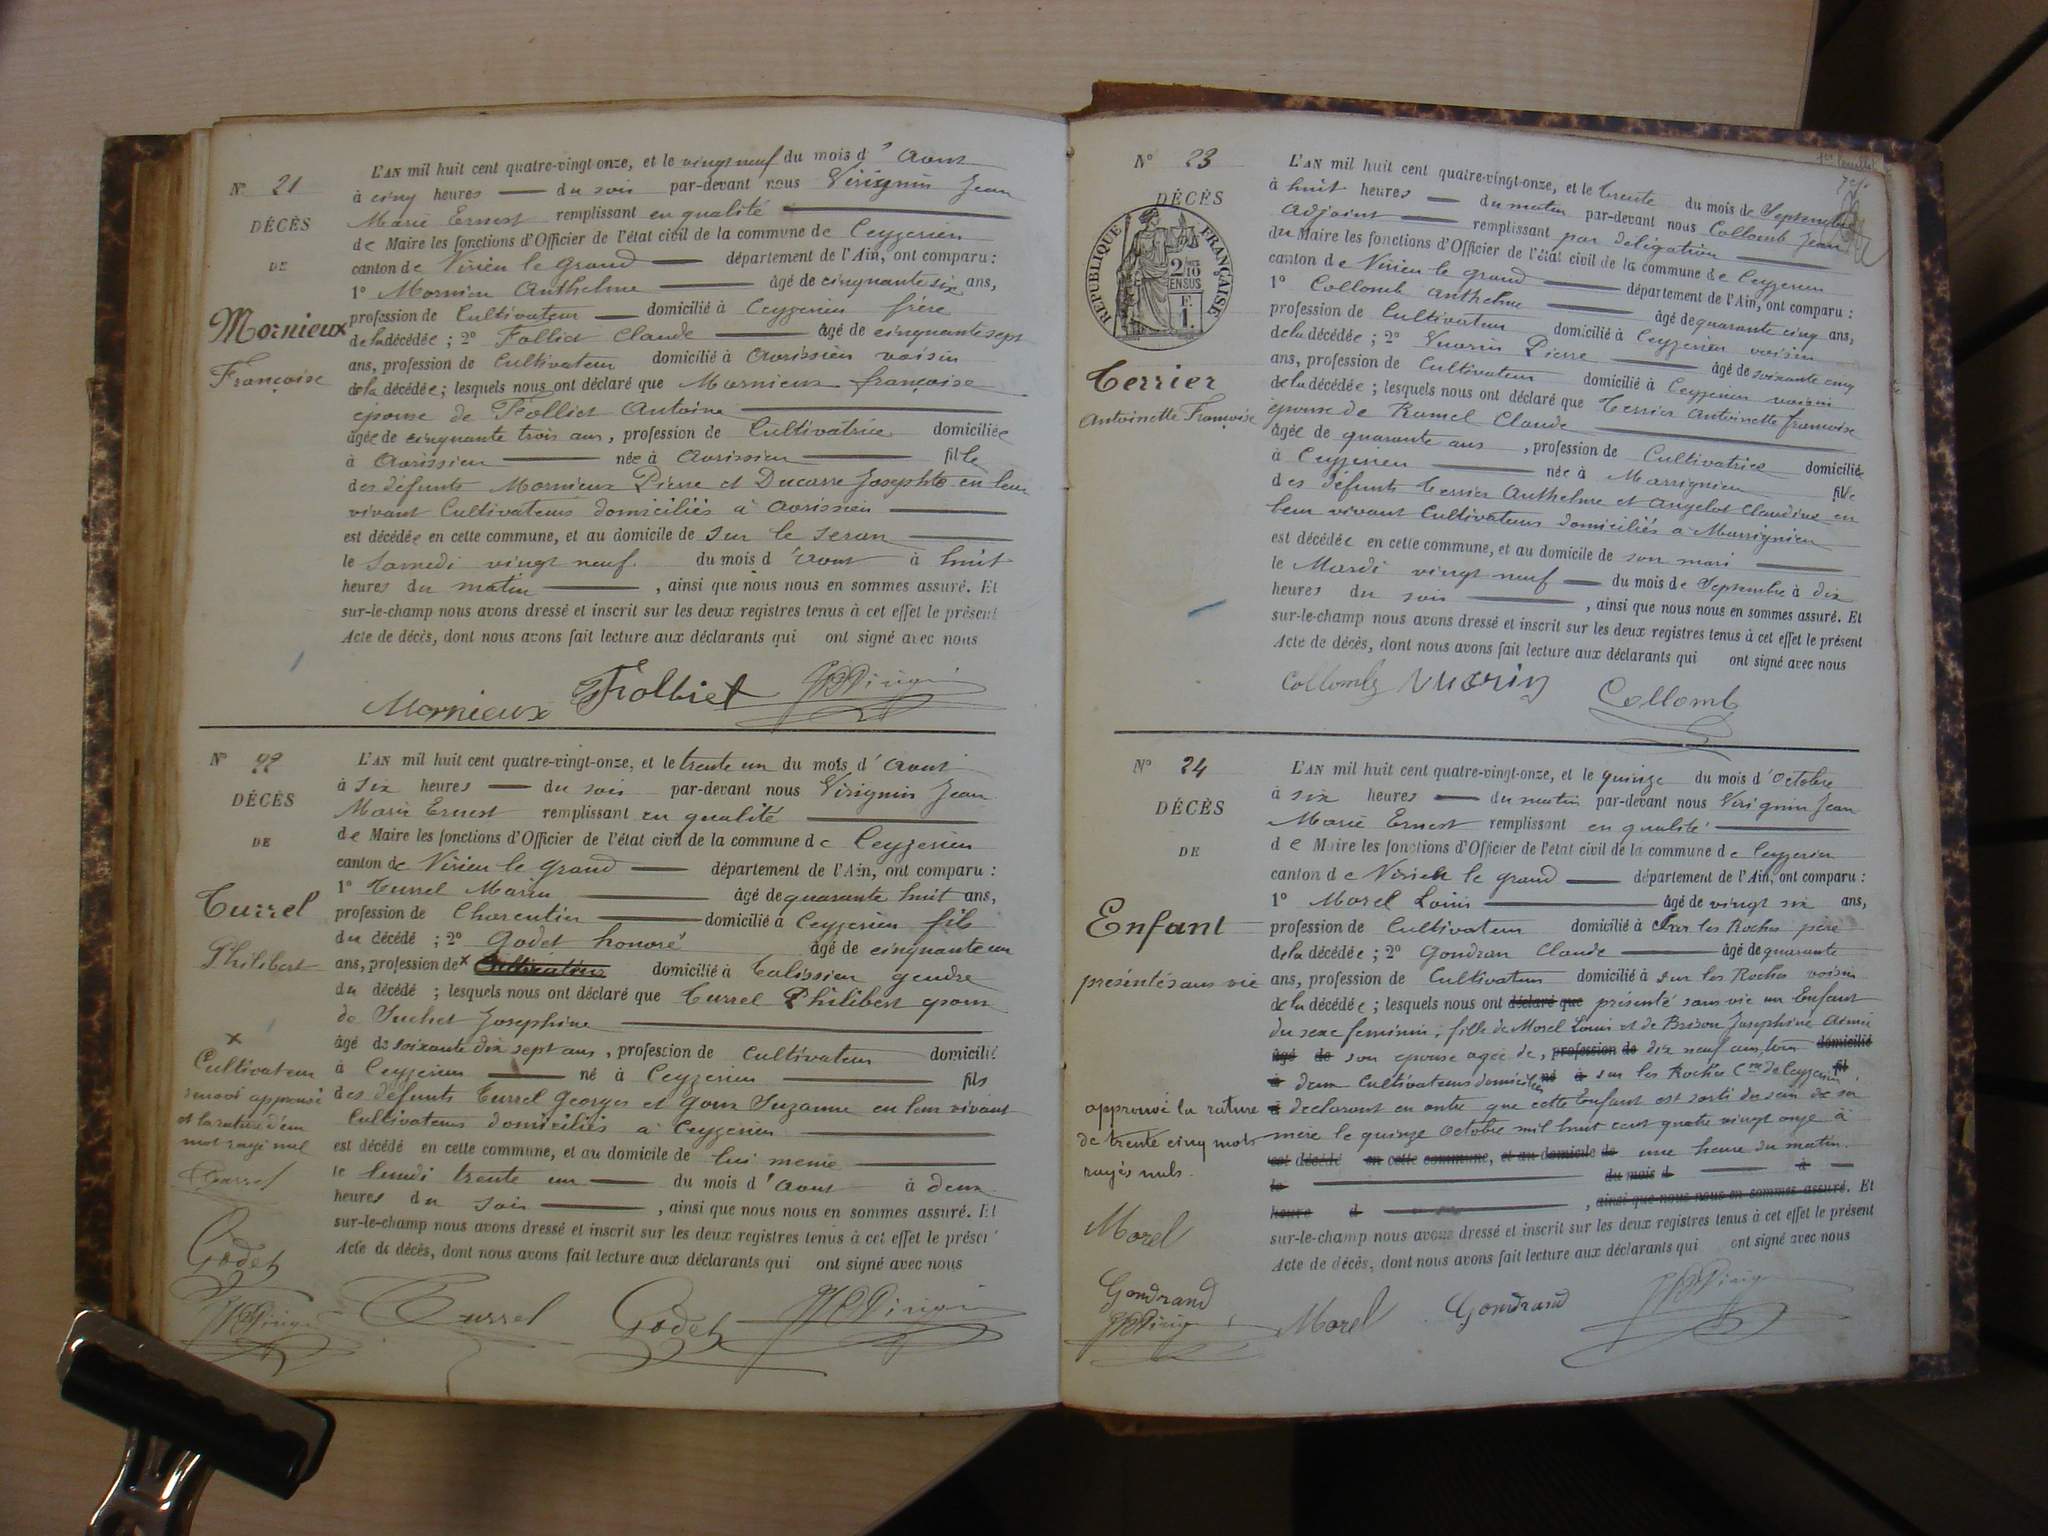 N° 21
DÉCÈS
DE
Mornieux
Françoise
L'AN mil huit cent quatre-vingt-onze, et le vingt neuf du mois d'Aout
à cinq heures — du soir par-devant nous Virignin Jean
Marie Ernest remplissant en qualité
de Maire les fonctions d'Officier de l'état civil de la commune de Ceyzerieu
canton de Virieu le Grand — département de l'Ain, ont comparu :
1° Mornieu Anthelme — âgé de cinquante six ans,
profession de Cultivateur — domicilié à Ceyzerieu frère
de la décédée ; 2° Folliet Claude — âgé de cinquante sept
ans, profession de Cultivateur domicilié à Avrissieu voisin
de la décédée ; lesquels nous ont déclaré que Mornieux françoise
épouse de Folliet Antoine
âgée de cinquante trois ans, profession de Cultivatrice domiciliée
à Avrissieu — née à Avrissieu — fille
des défunts Mornieux Pierre et Ducarre Josephte en leur
vivant Cultivateurs domiciliés à Avrissieu
est décédée en cette commune, et au domicile de sur le Seran
le Samedi vingt neuf du mois d'Aout à huit
heures du matin — , ainsi que nous nous en sommes assuré. Et
sur-le-champ nous avons dressé et inscrit sur les deux registres tenus à cet effet le présent
Acte de décès, dont nous avons fait lecture aux déclarants qui ont signé avec nous
Mornieux Folliet
N° 22
DÉCÈS
DE
Turrel
Philibert
L'AN mil huit cent quatre-vingt-onze, et le trente un du mois d'Aout
à six heures — du soir par-devant nous Virignin Jean
Marie Ernest remplissant en qualité
de Maire les fonctions d'Officier de l'état civil de la commune de Ceyzerieu
canton de Virieu le grand — département de l'Ain, ont comparu :
1° Turrel Marin — âgé de quarante huit ans,
profession de Charentier — domicilié à Ceyzerieu fils
du décédé ; 2° Godet honoré âgé de cinquante un
ans, profession de x Cultivateur domicilié à Talissieu gendre
du décédé ; lesquels nous ont déclaré que Turrel Philibert époux
de Suchet Josephine
âgé de soixante dix sept ans, profession de Cultivateur domicilié
à Ceyzerieu — né à Ceyzerieu — fils
des défunts Turrel Georges et Goux Suzanne en leur vivant
Cultivateurs domiciliés à Ceyzerieu
est décédé en cette commune, et au domicile de lui meme
le lundi trente un — du mois d'Aout à deux
heures du soir — , ainsi que nous nous en sommes assuré. Et
sur-le-champ nous avons dressé et inscrit sur les deux registres tenus à cet effet le présent
Acte de décès, dont nous avons fait lecture aux déclarants qui ont signé avec nous
x
Cultivateur
renvoi approuvé
et la rature d'un
mot rayé nul
Turrel
Godet
Turrel Godet
N° 23
DÉCÈS
RÉPUBLIQUE FRANÇAISE
2/10 EN SUS
F. 1.
Terrier
Antoinette Françoise
L'AN mil huit cent quatre-vingt-onze, et le trente du mois de Septembre
à huit heures — du matin par-devant nous Collomb Jean
adjoint — remplissant par délégation
du Maire les fonctions d'Officier de l'état civil de la commune de Ceyzerieu
canton de Virieu le grand — département de l'Ain, ont comparu :
1° Collomb Anthelme — âgé de quarante cinq ans,
profession de Cultivateur domicilié à Ceyzerieu voisin
de la décédée ; 2° Vuarin Pierre — âgé de soixante cinq
ans, profession de Cultivateur domicilié à Ceyzerieu voisin
de la décédée ; lesquels nous ont déclaré que Terrier Antoinette françoise
épouse de Ramel Claude
âgée de quarante ans, profession de Cultivatrice domiciliée
à Ceyzerieu — née à Marignieu fille
des défunts Terrier Anthelme et Angelot Claudine en
leur vivant Cultivateurs domiciliés à Marrignieu
est décédée en cette commune, et au domicile de son mari
le Mardi vingt neuf — du mois de Septembre à dix
heures du soir — , ainsi que nous nous en sommes assuré. Et
sur-le-champ nous avons dressé et inscrit sur les deux registres tenus à cet effet le présent
Acte de décès, dont nous avons fait lecture aux déclarants qui ont signé avec nous
Collomb Vuarin Collomb
N° 24
DÉCÈS
DE
Enfant
présenté sans vie
L'AN mil huit cent quatre-vingt-onze, et le quinze du mois d'Octobre
à six heures — du matin par-devant nous Virignin Jean
Marie Ernest remplissant en qualité
de Maire les fonctions d'Officier de l'état civil de la commune de Ceyzerieu
canton de Virieu le grand — département de l'Ain, ont comparu :
1° Morel Louis — âgé de vingt six ans,
profession de Cultivateur domicilié à Sur les Roches père
de la décédée ; 2° Gondran Claude — âgé de quarante
ans, profession de Cultivateur domicilié à sur les Roches voisin
de la décédée ; lesquels nous ont déclaré que présenté sans vie un Enfant
du sexe feminin, fille de Morel Louis et de Brison Josephine Aimée
âgé de son épouse agée de, profession de dix neuf ans, tous domicilié
à deux Cultivateurs domiciliés né à sur les Roches Cne de Ceyzerieu fil
à déclarant en outre que cette Enfant est sorti du sein de sa
mère le quinze Octobre mil huit cent quatre vingt onze à
est décédé en cette commune, et au domicile de une heure du matin.
le — du mois d — à —
heure d — , ainsi que nous nous en sommes assuré. Et
sur-le-champ nous avons dressé et inscrit sur les deux registres tenus à cet effet le présent
Acte de décès, dont nous avons fait lecture aux déclarants qui ont signé avec nous
approuvé la rature
de trente cinq mots
rayés nuls.
Morel
Gondrand
Morel Gondrand